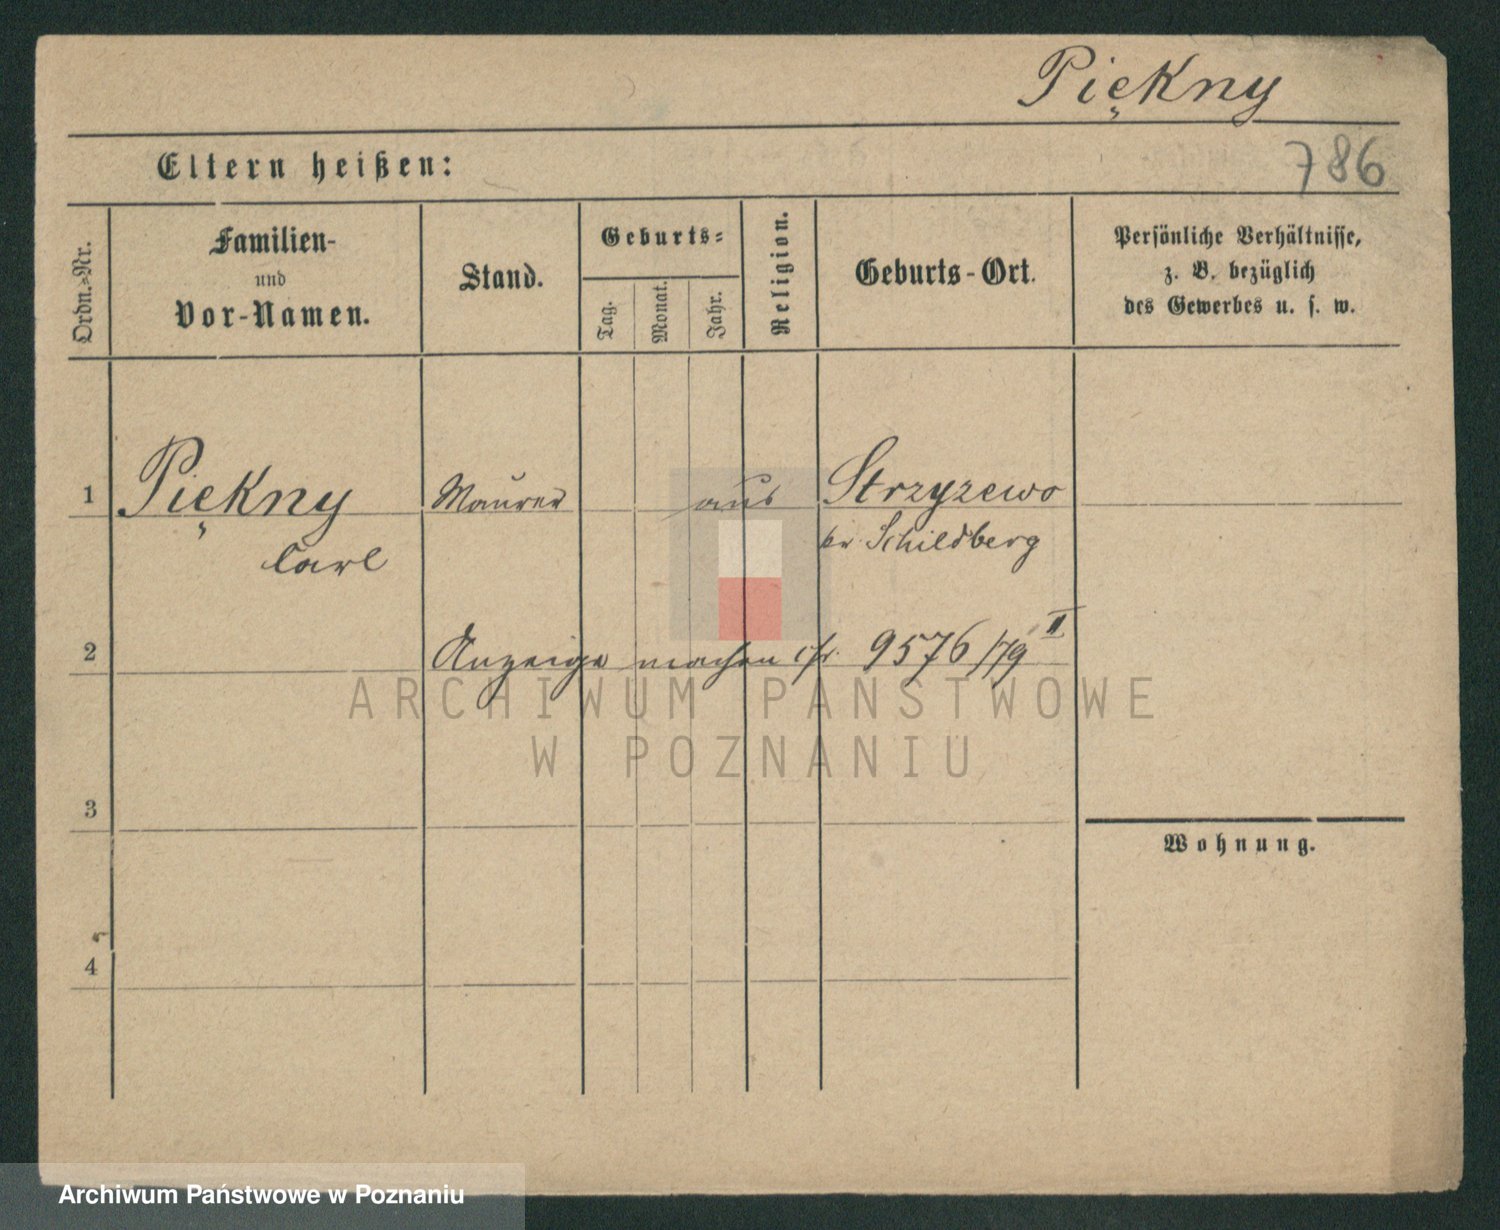 Piękny
786
Eltern heißen:
Ordn.-Nr.
Familien-
und
Vor-Namen.
Stand.
Geburts-
Tag.
Monat.
Jahr.
Religion.
Geburts-Ort.
Persönliche Verhältnisse,
z. B. bezüglich
des Gewerbes u. s. w.
1 Piękny Maurer aus Strzyzewo
Carl kr. Schildberg
2 Anzeige machen cfr. 9576/79 II
ARCHIWUM PAŃSTWOWE
W POZNANIU
3
Wohnung.
4
Archiwum Państwowe w Poznaniu